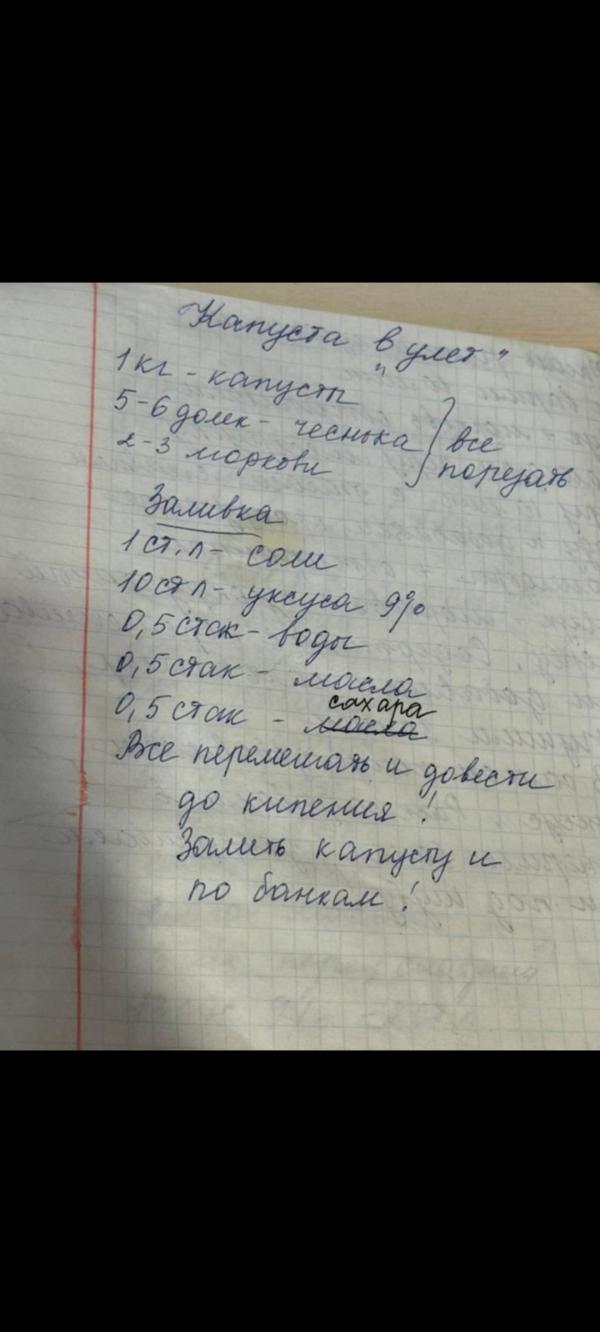 Капуста „в улет"
1 кг - капусты
5-6 долек - чеснька } все
2-3 моркови } порезать
Заливка
1 ст. л - соли
10 ст л - уксуса 9%
0,5 стак - воды
0,5 стак - масла
сахара
0,5 стак - масла
Все перемешать и довести
до кипения!
Залить капусту и
по банкам!